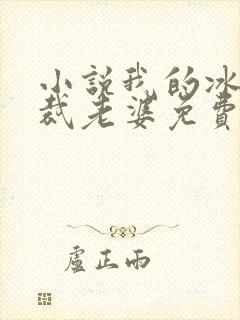 小説我的冰
裁老婆免費
盧正雨